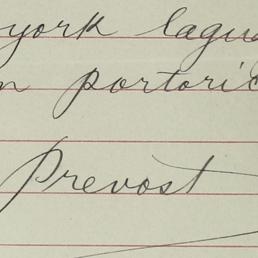 york lagu
n portori
Prevost